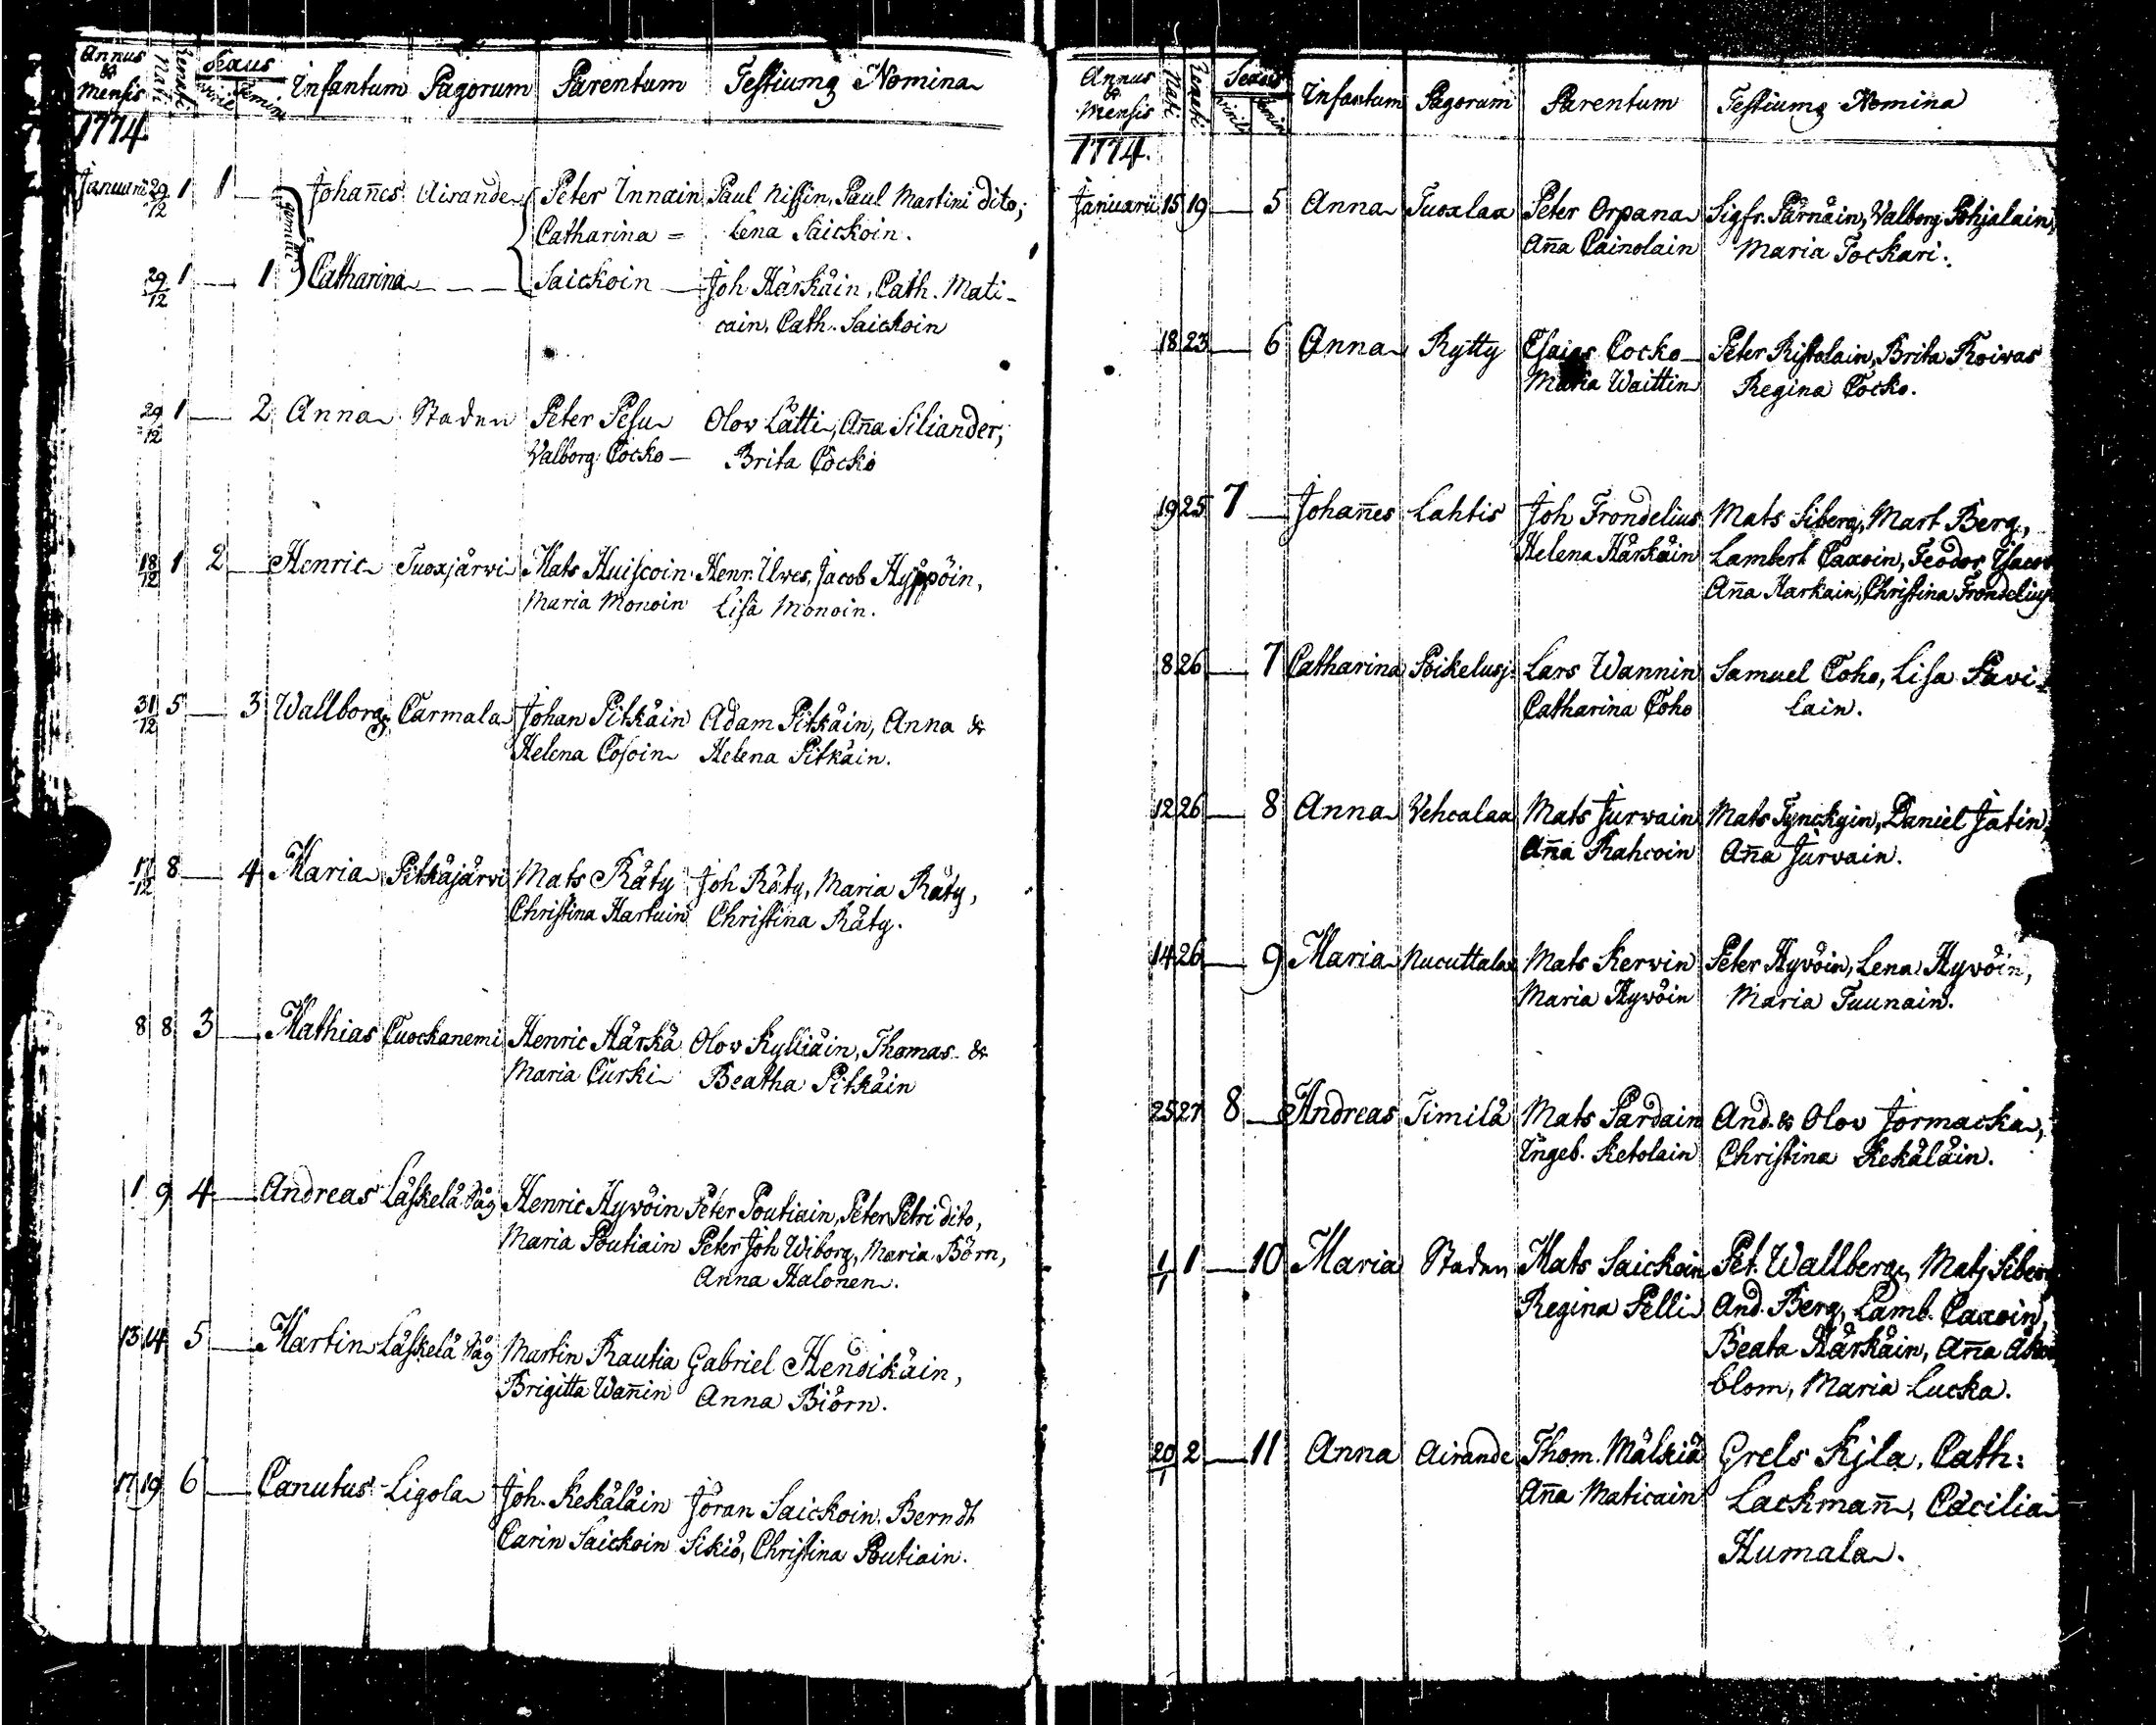 Annus & Mensis Nati Renati Sexus Viril Femin Infantum Pagorum Parentum Testiumq Nomina
1774
Januarii 29/12 1 1 — Johañes Airande Peter Innain Paul Nissin, Paul Martini dito,
gemelli Catharina = Lena Saickoin.
29/12 1 — 1 Catharina — — — Saickoin — Joh Härkäin, Cath. Mati-
cain, Cath. Saickoin
29/12 1 — 2 Anna Staden Peter Pesu Olov Lätti, Aña Siliander,
Valborg Cocko — Brita Cocko
18/12 1 2 — Henric Tuoxjärwi Mats Huiscoin Henr. Ilwes, Jacob Hyppöin,
Maria Monoin Lisa Monoin.
31/12 5 — 3 Wallborg Carmala Johan Pitkäin Adam Pitkäin, Anna &
Helena Cosoin Helena Pitkäin.
17/12 8 — 4 Maria Pitkäjärvi Mats Räty Joh Räty, Maria Räty,
Christina Hartuin Christina Räty.
8 8 3 — Mathias Cuockanemi Henric Härkä Olov Kylliäin, Thomas &
Maria Curki Beatha Pitkäin
1 9 4 — Andreas Läskelä Såg Henric Hywöin Peter Poutiain, Peter Petri dito,
Maria Poutiain Peter Joh Wiborg, Maria Börn,
Anna Halonen.
13 14 5 — Martin Läskelä Såg Martin Rautia Gabriel Hendikäin,
Brigitta Wañin Anna Biörn.
17 19 6 — Canutus Ligola Joh. Kekäläin Jöran Saickoin, Berndt
Carin Saickoin Sikiö, Christina Poutiain.
Annus & Mensis Nati Renati Sexus Viril Femin Infantum Pagorum Parentum Testiumq Nomina
1774.
Januarii 15 19 — 5 Anna Tuoxlax Peter Orpana Sigfr. Pärnäin, Valborg Pohjalain,
Aña Cainolain Maria Tockari.
18 23 — 6 Anna Rytty Esaias Cocko Peter Ristolain, Brita Roivas
Maria Waittin Regina Cocko.
19 25 7 — Johañes Lahtis Joh Frondelius Mats Siberg, Mart Berg,
Helena Härkäin Lambert Caxoin, Feodor
Aña Harkain, Christina Frondelius
8 26 — 7 Catharina Poikelusj. Lars Wannin Samuel Coho, Lisa Pavi-
Catharina Coho lain.
12 26 — 8 Anna Vehcalax Mats Jurvain Mats Tynckyin, Daniel Jatin,
Aña Rahcoin Aña Jurvain.
14 26 — 9 Maria Nucuttalax Mats Kervin Peter Hyvöin, Lena Hyvöin,
Maria Hywöin Maria Tuunain.
25 27 8 — Andreas Jimilä Mats Pardain And. & Olov Jormacka,
Ingeb. Ketolain Christina Kekäläin.
1/1 1 — 10 Maria Staden Mats Saickoin Pet. Wallberg, Mats Siberg
Regina Pelli And. Berg, Lamb. Caxoin,
Beata Härkäin, Aña
blom, Maria Lucka.
20/1 2 — 11 Anna Airande Thom. Mälkiä Grels Kyla, Cath:
Aña Maticain Lackmañ, Cäcilia
Humala.